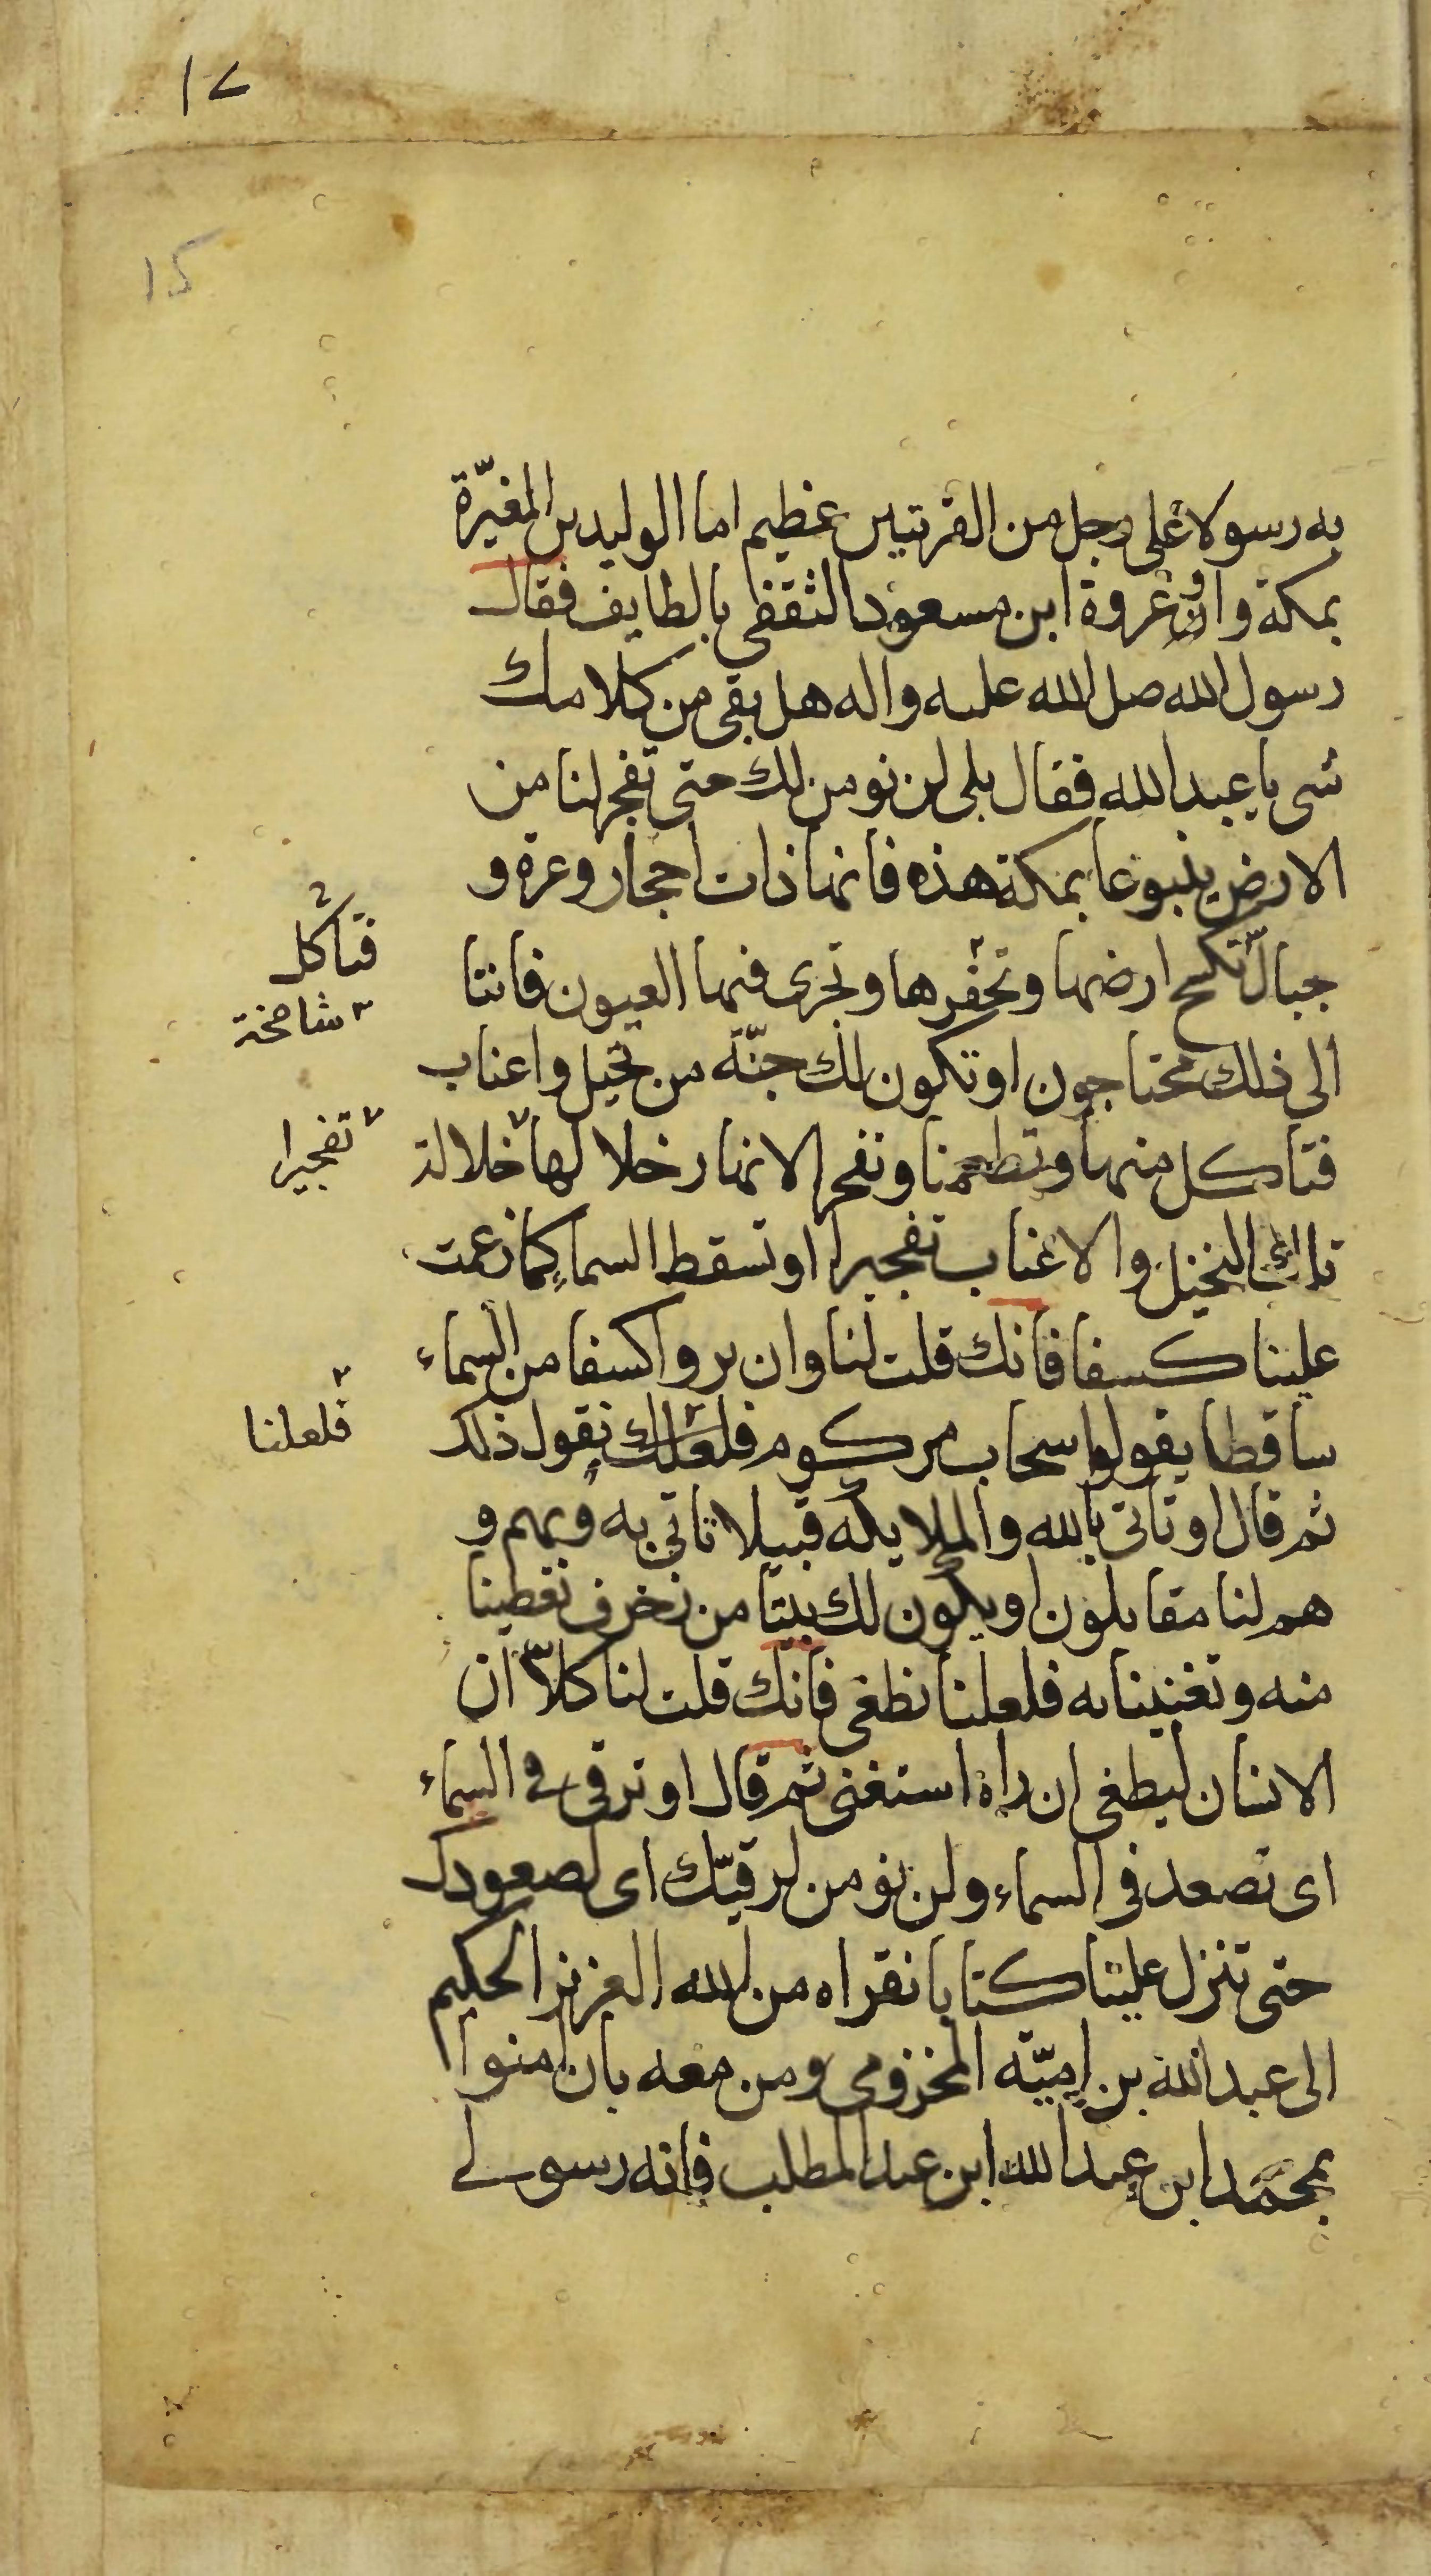 ١٢
١٥
به رسولا على رجل من القريتين عظيم اما الوليد بن المغيرة
بمكة وان عروة ابن مسعود الثقفى بالطايف فقال
رسول الله صل الله عليه واله هل بقى من كلامك
شى يا عبد الله فقال بلى لن نومن لك حتى تفجر لنا من
الارض ينبوعا بمكة هذه فانها ذات احجار وعرة و
جبال تكسح ارضها وتحفرها وتجرى فيها العيون فاننا
الى ذلك محتاجون او تكون لك جنّة من نخيل واعناب
فتاكل منها وتطعمنا وتفجر الانهار خلالها خلالة
تلك النخيل والاعناب تفجيرا او تسقط السماء كما زعمت
علينا كسفا فانك قلت لنا وان يروا كسفا من السماء
ساقطا يقولوا سحاب مركوم فلعلك نقول ذلك
ثم قال او تاتى بالله والملايكه قبيلا تاتى به وبهم و
هم لنا مقابلون او يكون لك بيتا من زخرف تعطينا
منه وتغنينا به فلعلنا نطغى فانك قلت لنا كلا ان
الانسان ليطغى ان راه استغنى ثم قال او ترقى فى السماء
اى تصعد فى السماء ولن نومن لرقيّك اى لصعودك
حتى تنزل علينا كتابا نقراه من الله العزيز الحكيم
الى عبد الله بن اميّة المخزومى ومن معه بان امنوا
بمحمّد ابن عبد الله ابن عبد المطلب فانه رسولى
فتاكل
شامخة
تفجيرا
فلعلنا